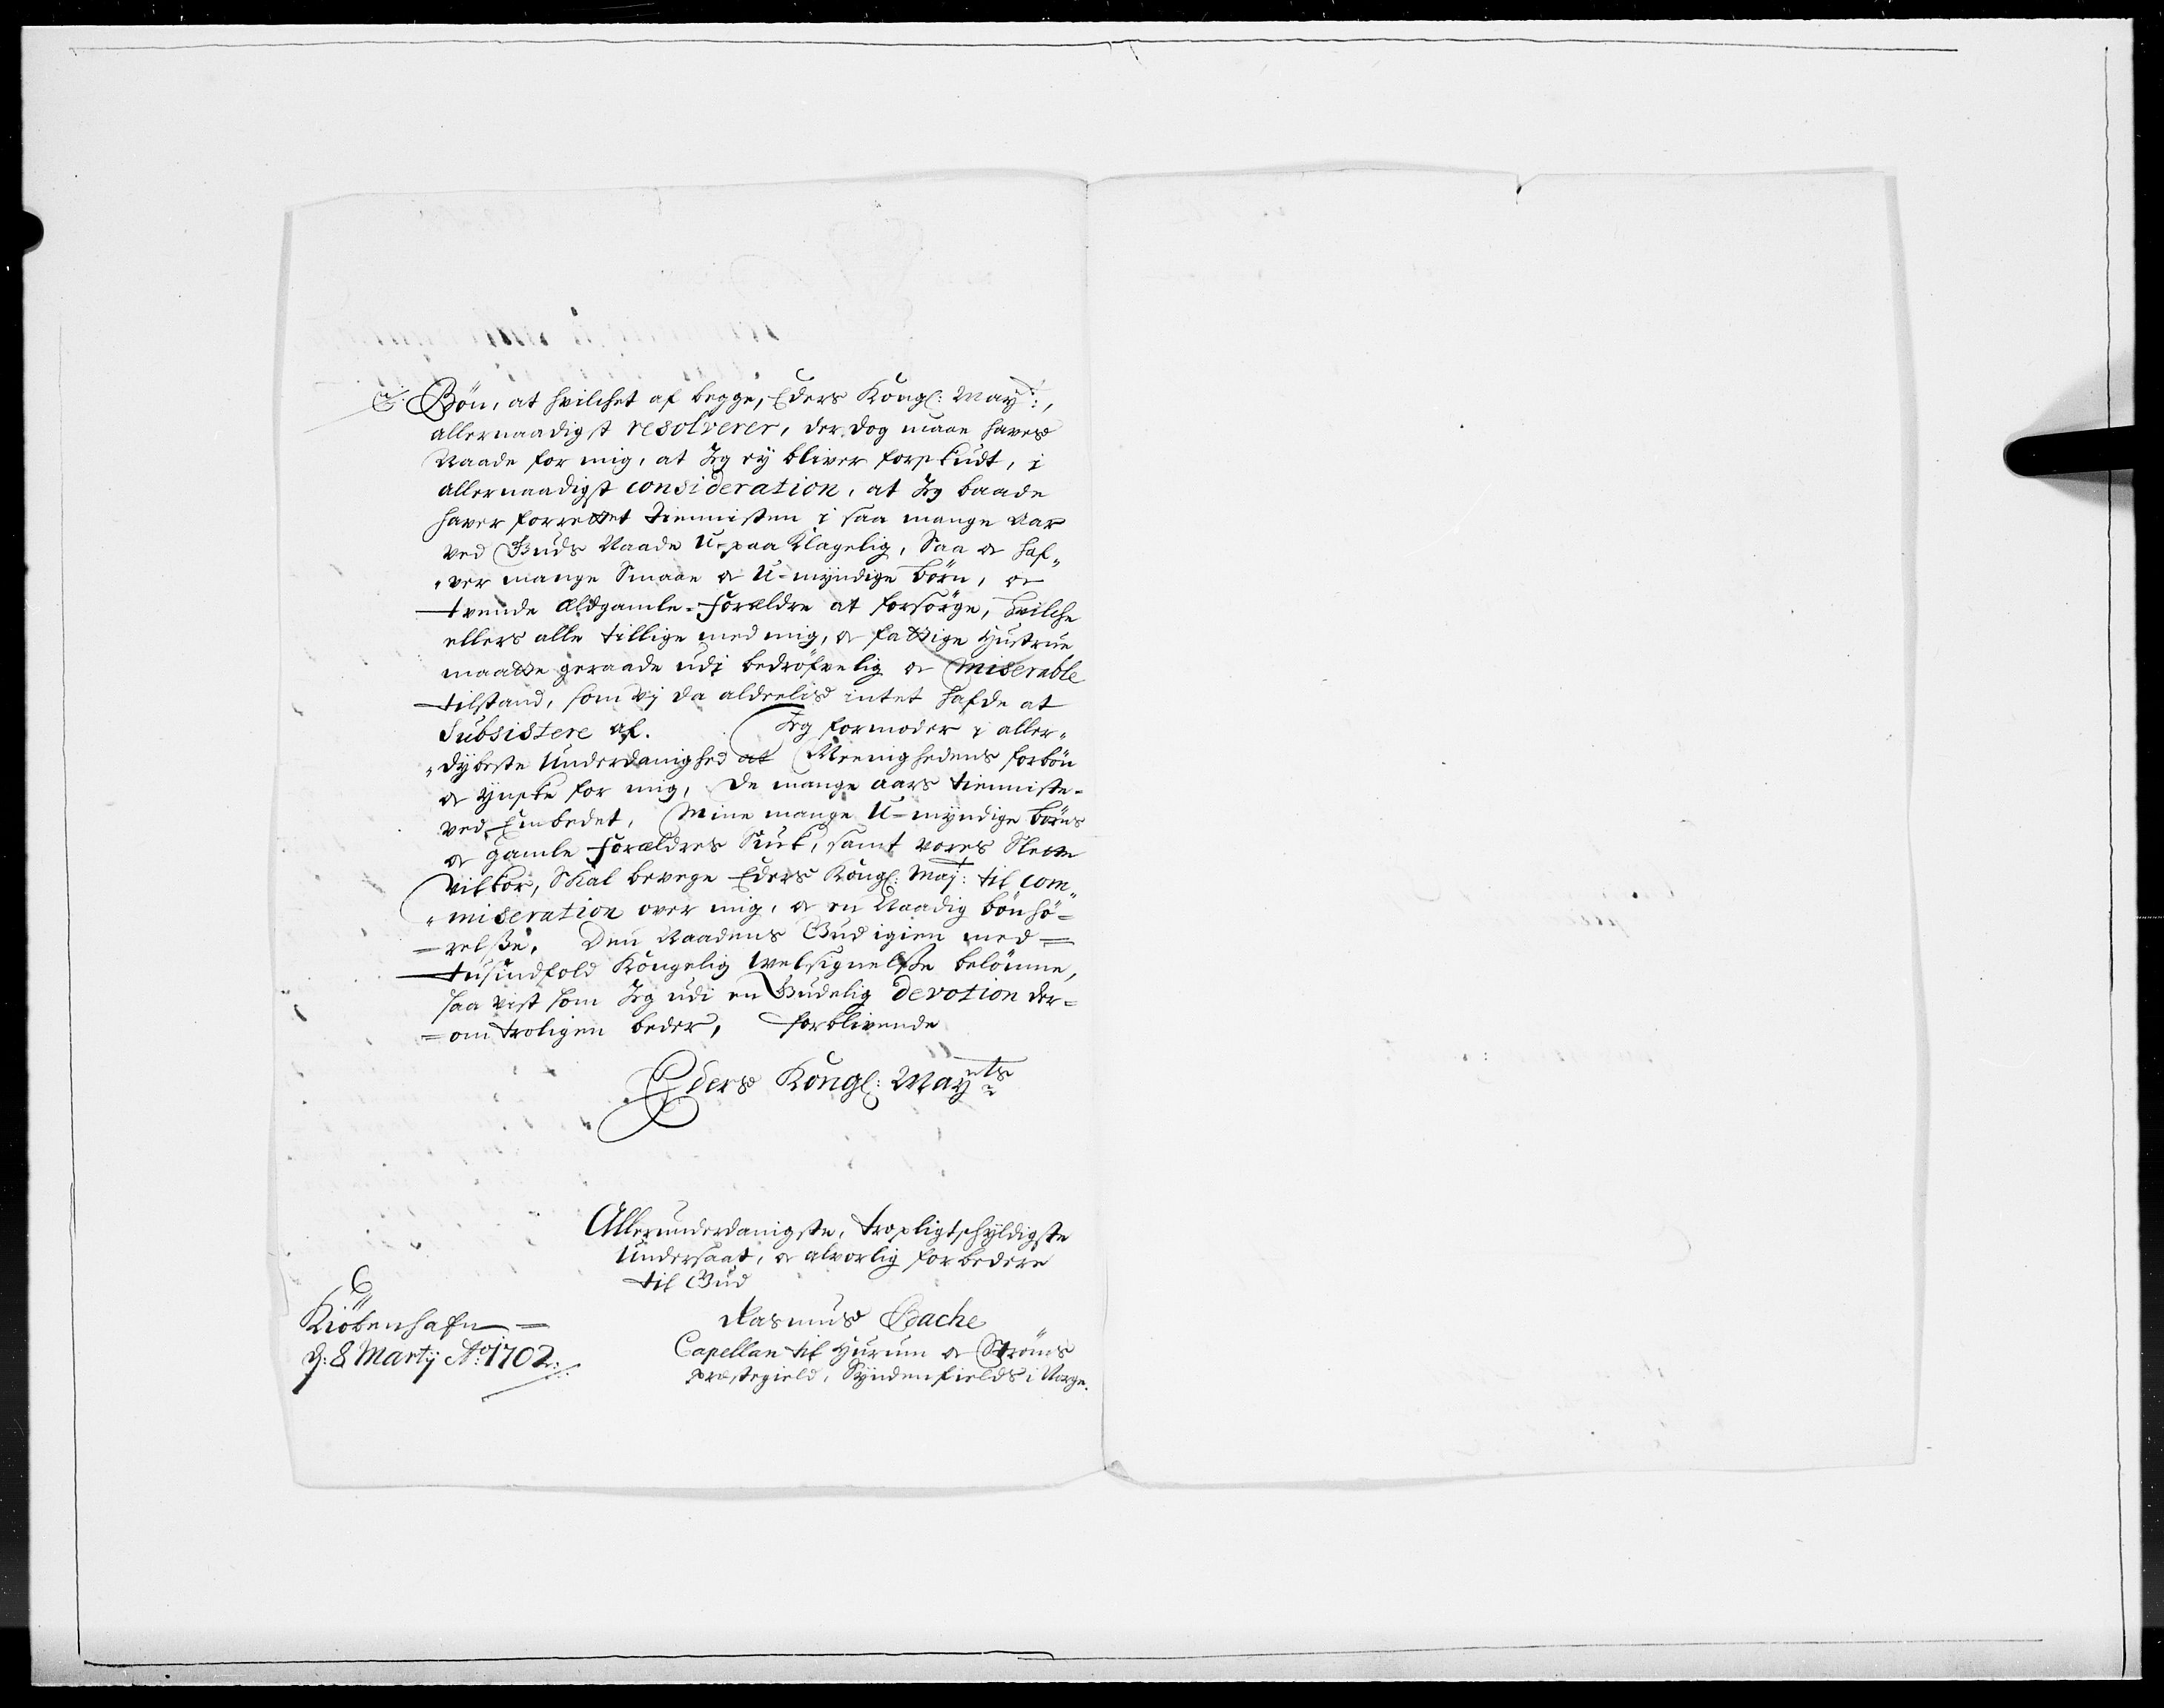 Bön, at hvilchet af begge, Eders Kongl: May:t,
allernaadigst resolverer, der dog maae haves
Naade for mig, at Jeg ey bliver forskudt, i
allernaadigst consideration, at Jeg baade
haver forrettet tiennisten i saa mange Aar
ved Guds Naade U-paa Klagelig, Saa og haf„
„ver mange Smaae og U-myndige Börn, og
tvende Ældgamle-Forældre at forsörge, hvilche
ellers alle tillige med mig, og fattige Hustrue
maatte geraade udi bedröfvelig og miserable
tilstand, som vj da aldrelis intet hafde at
Subsistere af. Jeg formoder i aller„
„dybeste Underdanighed at Meenighedens forbön
og Ynske for mig, De mange aars tienniste-
ved Embedet, Mine mange U-myndige Börns
og gamle Forældres Suk, samt vores Slette
Vilkor, Skal bevege Eders Kongl: Maj:t til com„
„miseration over mig, og en Naadig bönhö=
=relße. Den Naadens Gud igien med=
tusindfold Kongelig Welsignelße belönne,
saa vist som Jeg udi en Gudelig devotion der=
=om troligen beder, forblivende
Eders Kongl: Mayts
Allerunderdanigste, tropligtschyldigste
Undersaat, og alvorlig forbedere
til Gud
Kiöbenhafn=
d: 8 Martij Ao: 1702.
Rasmus Bache
Capellan til Hurum og Ströms
præstegield, Syndenfields i Norge.